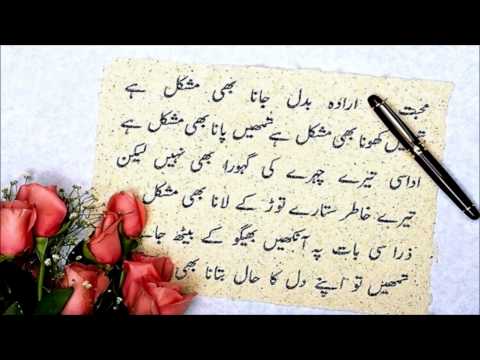 محبت ارادہ بدل جانا بھی مشکل ہے
کھونا بھی مشکل ہے تمھیں پانا بھی مشکل ہے
اداسی تیرے چہرے کی گہورا بھی نہیں لیکن
تیرے خاطر ستارے توڑ کے لانا بھی مشکل
ذرا سی بات پہ آنکھیں بھیگو کے بیٹھ جاتے
تمھیں تو اپنے دل کا حال بتانا بھی